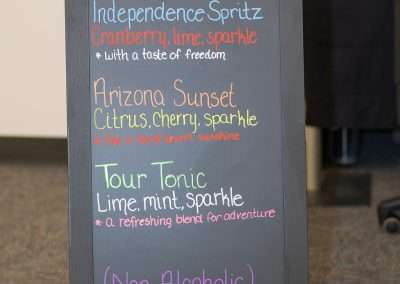 Independence Spritz
Cranberry, lime, sparkle
* with a taste of freedom
Arizona Sunset
Citrus, Cherry, sparkle
sunshine
Tour Tonic
Lime, mint, sparkle
* a refreshing blend for adventure
(Non Alcoholic)